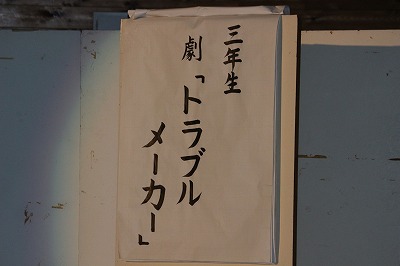 三年生
劇「トラブル
メーカー」